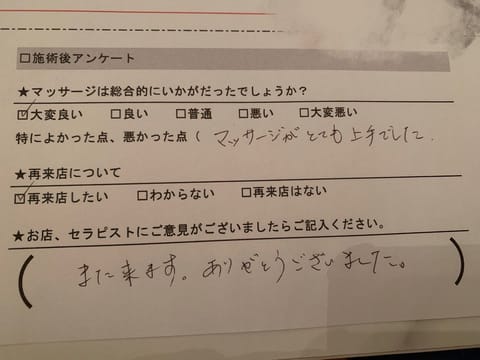 □施術後アンケート
★マッサージは総合的にいかがだったでしょうか？
☑大変良い □良い □普通 □悪い □大変悪い
特によかった点、悪かった点（ マッサージがとても上手でした.
★再来店について
☑再来店したい □わからない □再来店はない
★お店、セラピストにご意見がございましたらご記入ください。
( また来ます。ありがとうございました。 )